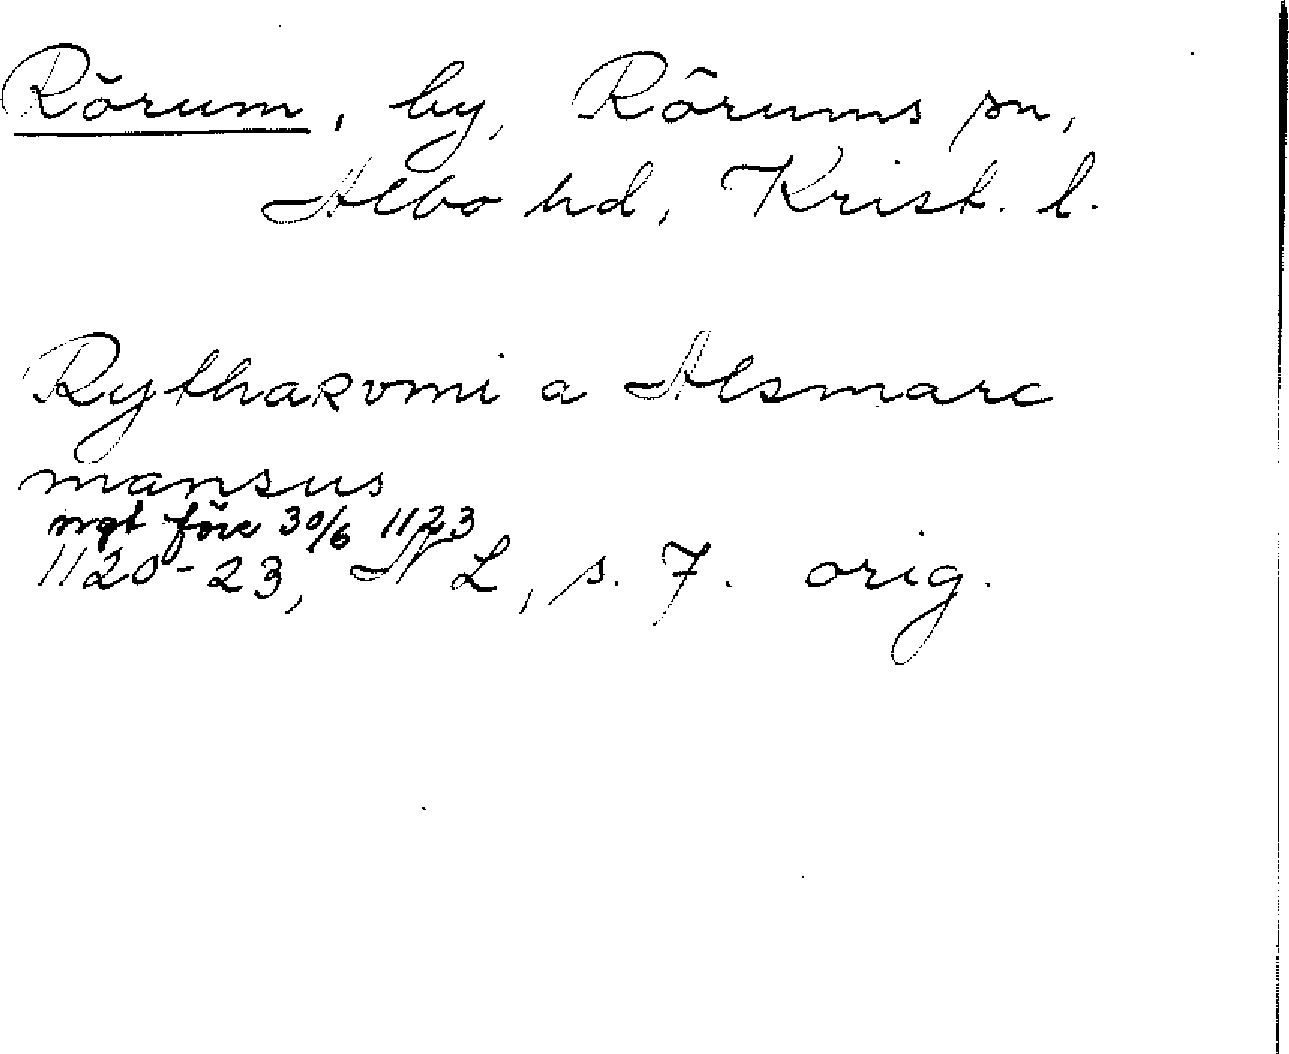 Rörum, by, Rörums sn,
Albo hd, Krist. l.
RythaRvmi a Alsmarc
mansus
ngt före 30/6 1123
1120-23, NL, s. 7. orig.